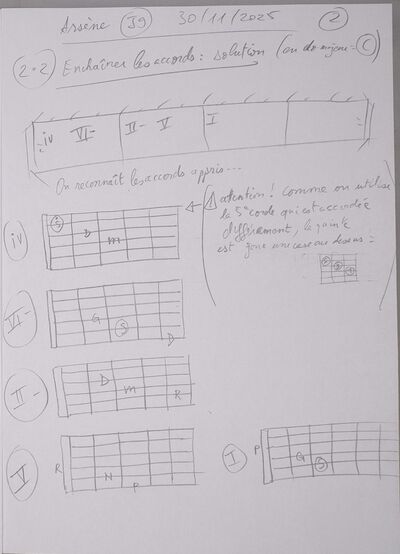 Arsène J9 30/11/2025 2
2.2 Enchaîner les accords : solution (en do majeur = C)
iv VI- II- V I
On reconnaît les accords appris...
attention ! Comme on utilise
la 5e corde qui est accordée
différemment,
est jouée une case au dessus :
iv
S D M
VI-
G S D
II-
D M R
V
R N P
I
P G S